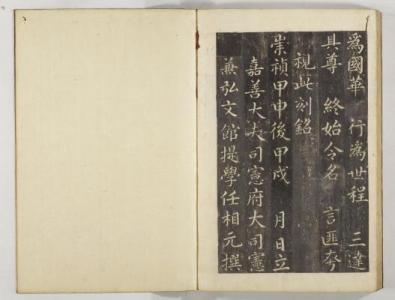 爲國華 行爲世程 三達
具尊 終始令名 言匪夸
視此刻銘
崇禎甲申後甲戌 月日立
嘉善大夫司憲府大司憲
兼弘文館提學任相元撰